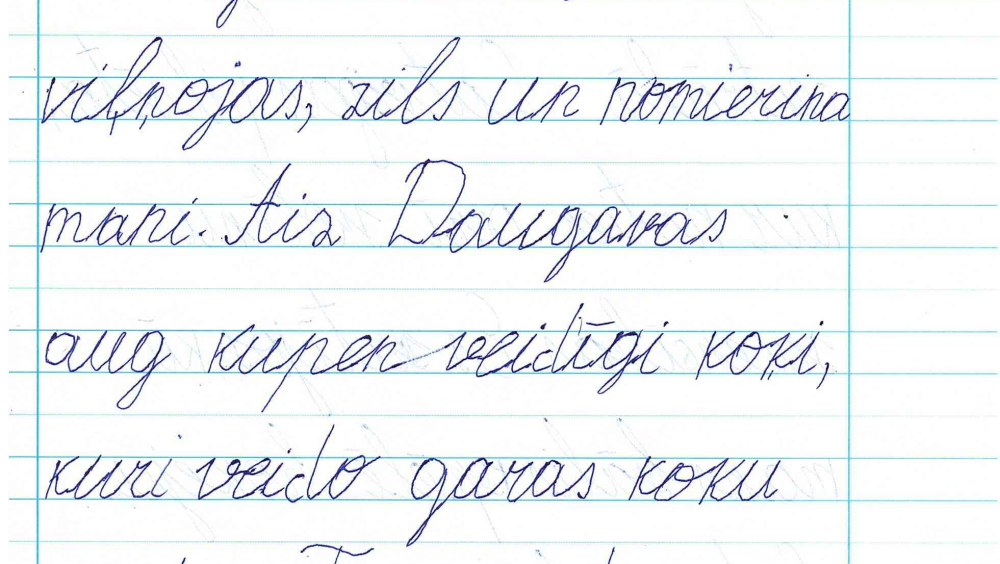 viļņojas, zils un nomierina
mani. Aiz Daugavas
aug kupen veidīgi koķi,
kuri veido garas koku